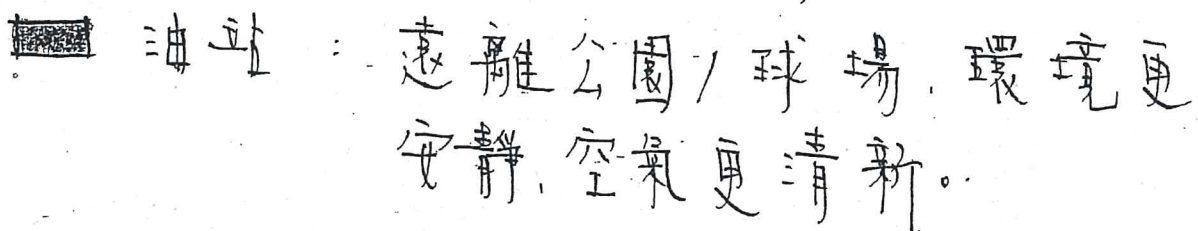 油站：遠離公園/球場，環境更
安靜，空氣更清新。